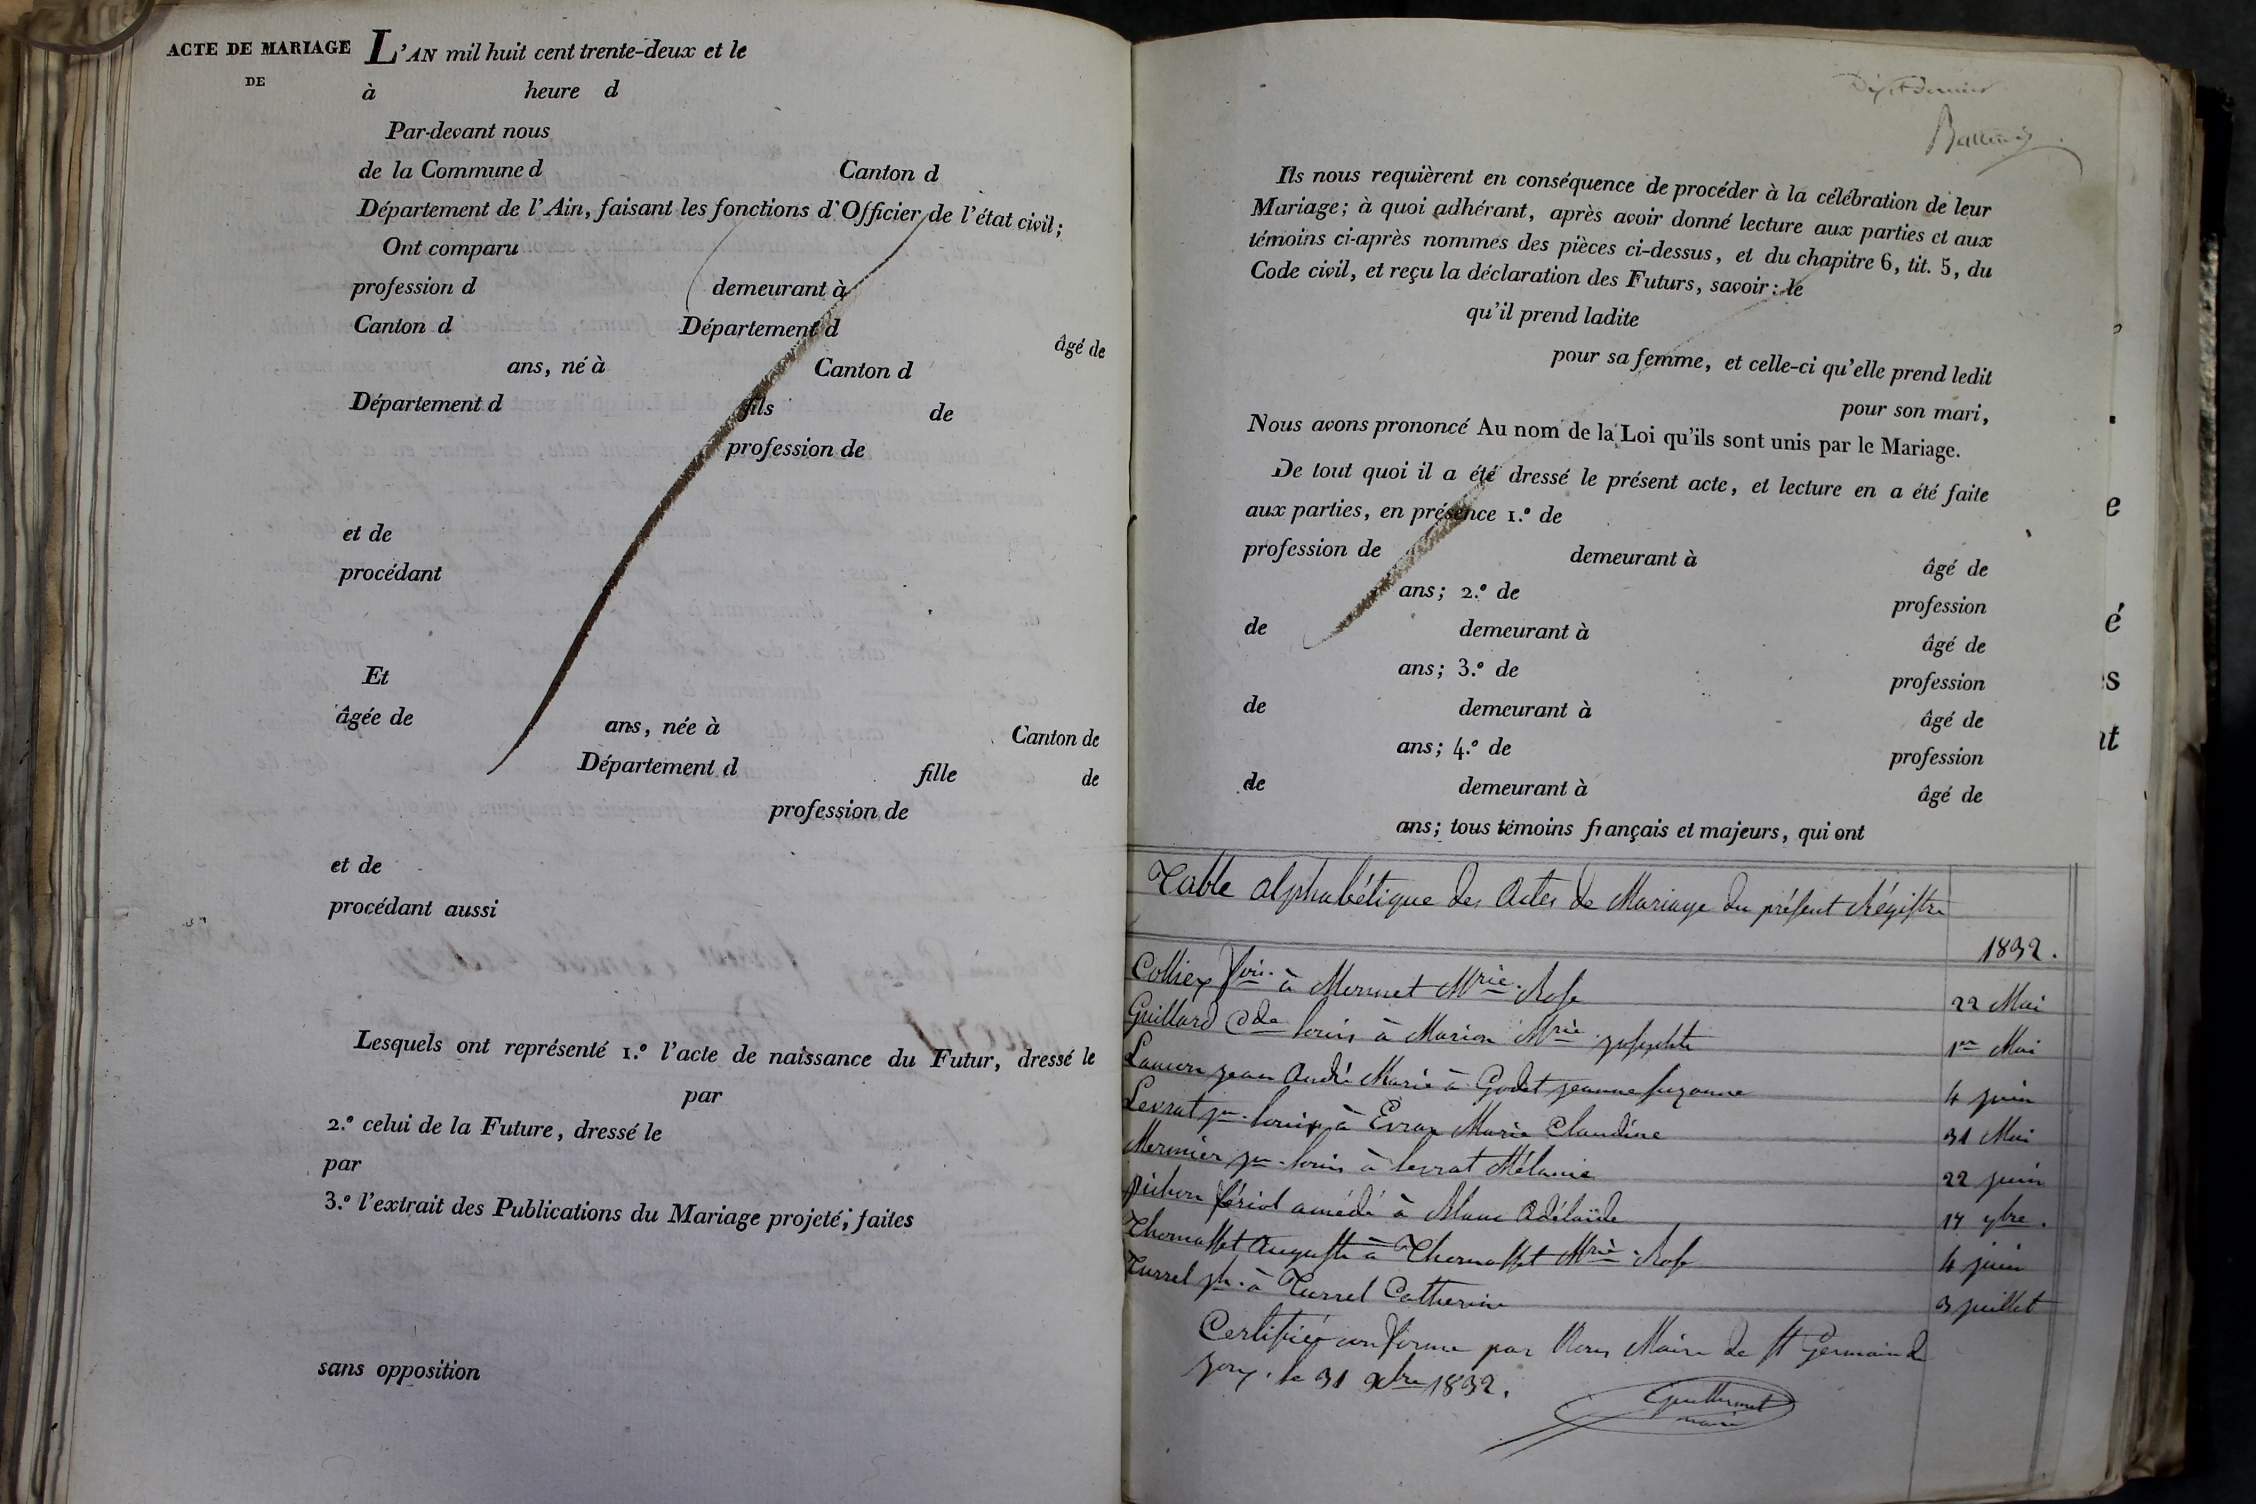 ACTE DE MARIAGE
DE
L'AN mil huit cent trente-deux et le
à heure d
Par-devant nous
de la Commune d Canton d
Département de l'Ain, faisant les fonctions d'Officier de l'état civil;
Ont comparu
profession d demeurant à
Canton d Département d
âgé de
ans, né à Canton d
Département d fils de
profession de
et de
procédant
Et
âgée de ans, née à Canton de
Département d fille de
profession de
et de
procédant aussi
Lesquels ont représenté 1.º l'acte de naissance du Futur, dressé le
par
2.º celui de la Future, dressé le
par
3.º l'extrait des Publications du Mariage projeté, faites
sans opposition
Ils nous requièrent en conséquence de procéder à la célébration de leur
Mariage; à quoi adhérant, après avoir donné lecture aux parties et aux
témoins ci-après nommés des pièces ci-dessus, et du chapitre 6, tit. 5, du
Code civil, et reçu la déclaration des Futurs, savoir: le
qu'il prend ladite
pour sa femme, et celle-ci qu'elle prend ledit
pour son mari,
Nous avons prononcé Au nom de la Loi qu'ils sont unis par le Mariage.
De tout quoi il a été dressé le présent acte, et lecture en a été faite
aux parties, en présence 1.º de
profession de demeurant à âgé de
ans; 2.º de profession
de demeurant à âgé de
ans; 3.º de profession
de demeurant à âgé de
ans; 4.º de profession
de demeurant à âgé de
ans; tous témoins français et majeurs, qui ont
Table alphabétique des Actes de Mariage du présent Régistre
1832.
Colliex fois. à Mermet Mrie Rose 22 Mai
Guillard Cde Louis à Marion Mrie josephte 1er Mai
jean André Marie à Godet jeanne suzanne 4 juin
Levrat jn. Louis à Evrax Marie Claudine 31 Mai
Mermier jn. Louis à levrat Mélanie 22 juin
pichon fériol amédé à Blanc Adélaïde 17 9bre.
Thomasset Auguste à Thomasset Mrie Rose 4 juin
Turrel jh. à Turrel Catherine 3 juillet
Certifiée conforme par Nous Maire de St Germain de
joux. le 31 xbre 1832.
Guillermet
maire